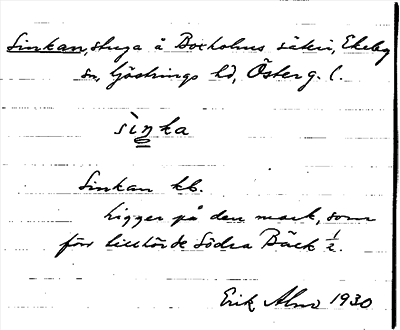 Sinkan, stuga å Boxholms säteri, Ekeby
sn, Göstrings hd, Österg. l.
sìŋka
Sinkan kb.
Ligger på den mark, som
förr tillhörde Södra Bäck ½.
Erik Abro 1930